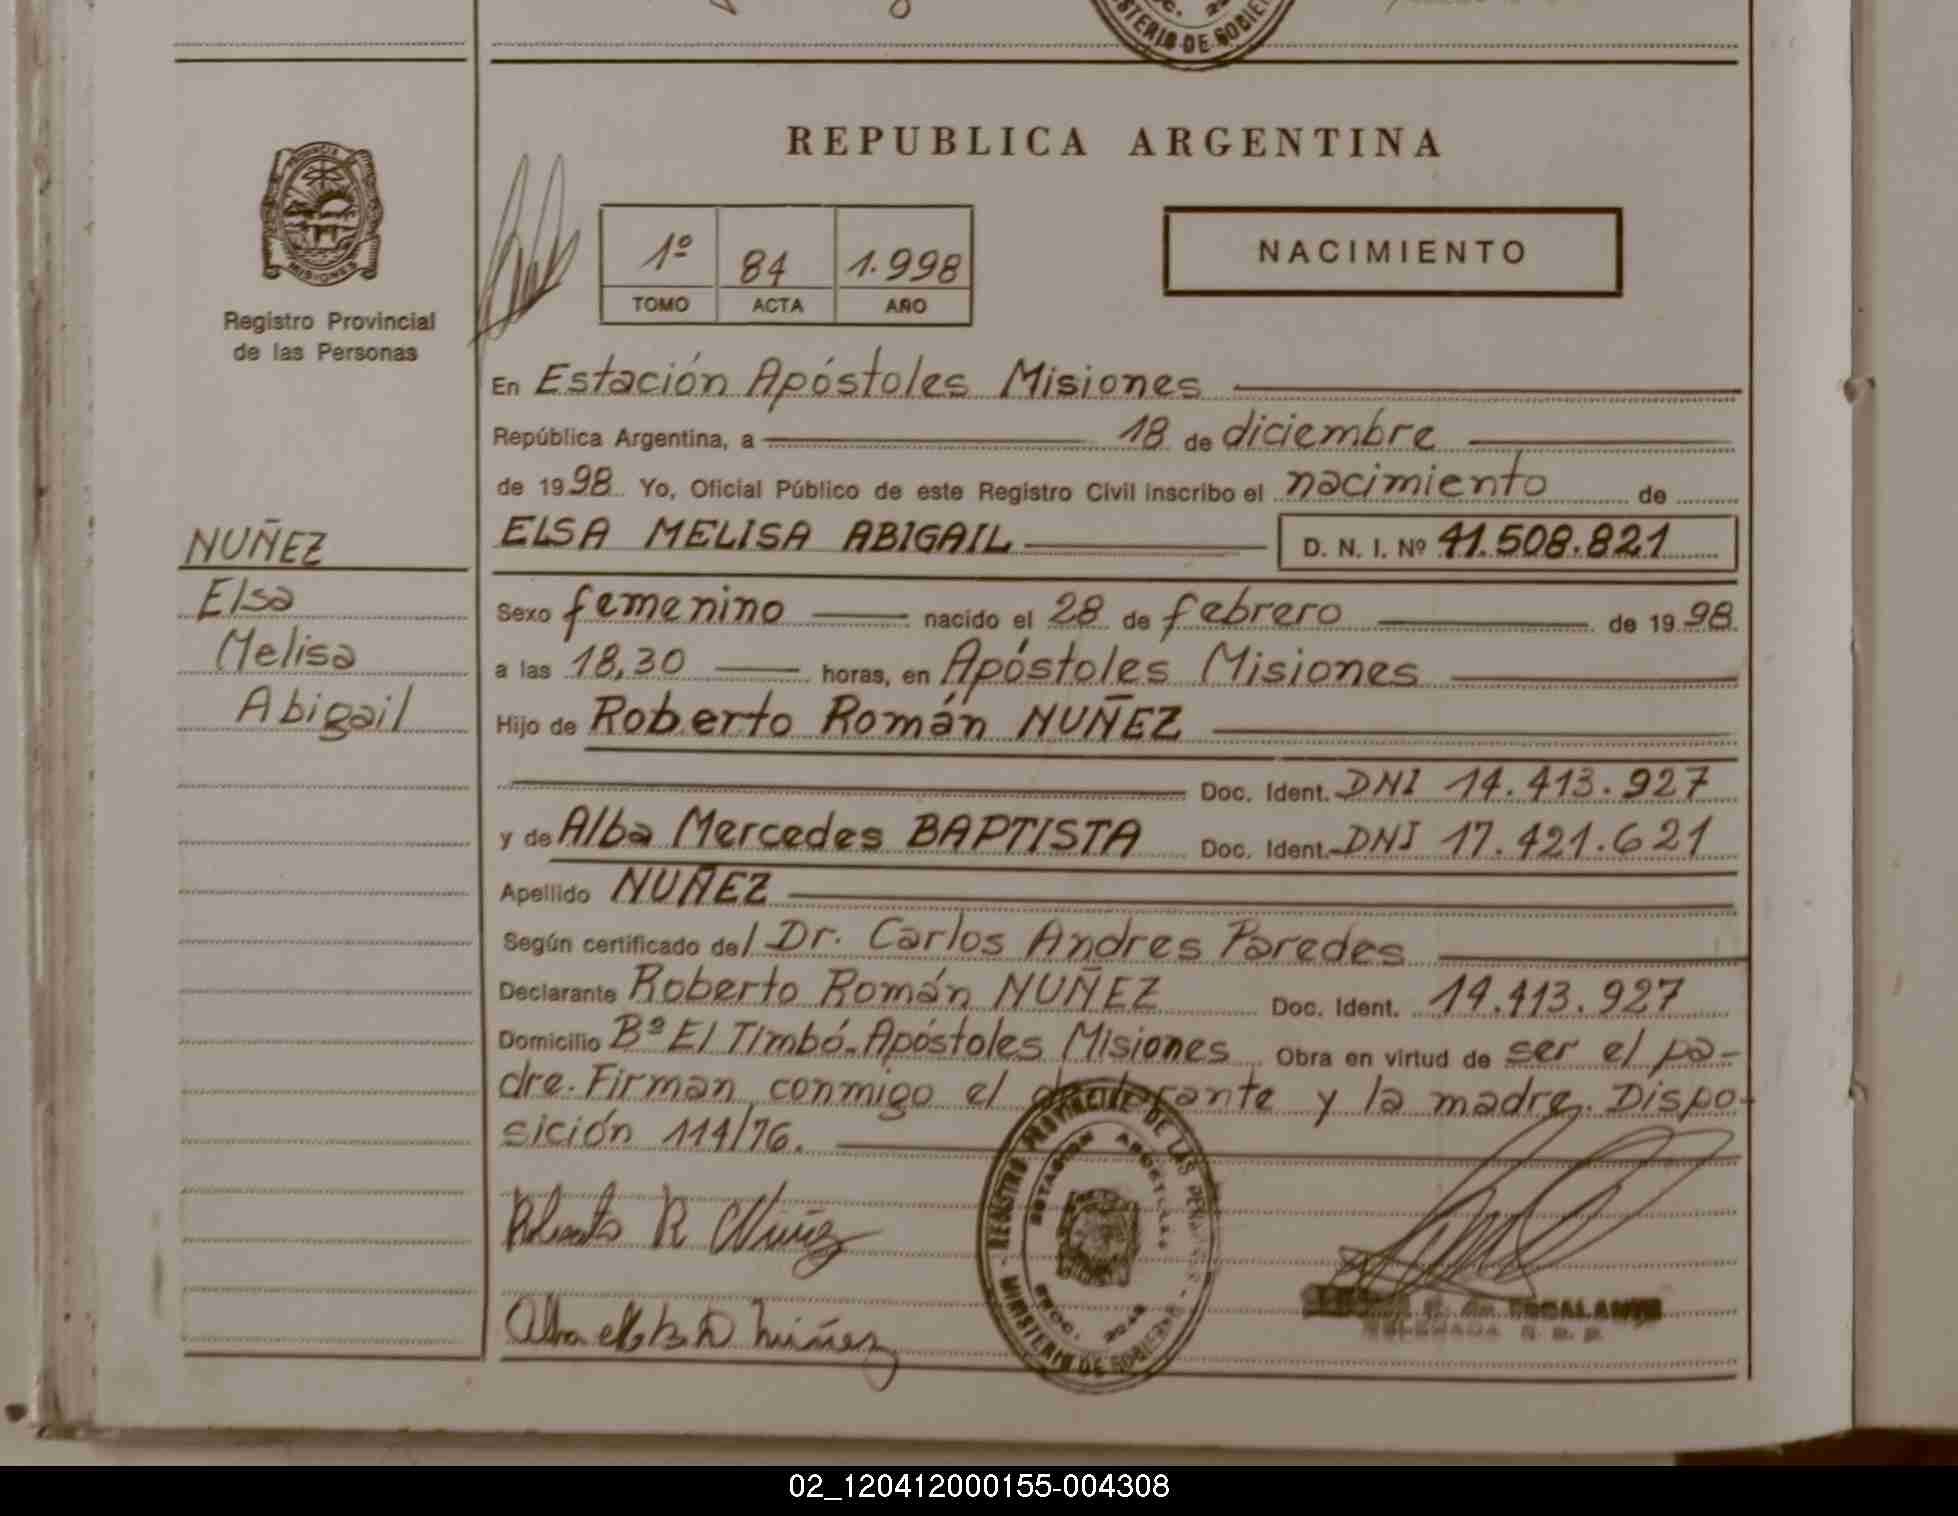 MINISTERIO DE GOBIERNO
REPUBLICA ARGENTINA
PROVINCIA
MISIONES
Registro Provincial
de las Personas
1º 84 1.998
TOMO ACTA AÑO
NACIMIENTO
En Estación Apóstoles Misiones
República Argentina, a 18 de diciembre
de 1998 Yo, Oficial Público de este Registro Civil inscribo el nacimiento de
ELSA MELISA ABIGAIL D. N. I. Nº 41.508.821
NUÑEZ
Elsa
Melisa
Abigail
Sexo femenino nacido el 28 de febrero de 1998
a las 18,30 horas, en Apóstoles Misiones
Hijo de Roberto Román NUÑEZ
Doc. Ident. DNI 14.413.927
y de Alba Mercedes BAPTISTA Doc. Ident. DNI 17.421.621
Apellido NUÑEZ
Según certificado del Dr. Carlos Andres Paredes
Declarante Roberto Román NUÑEZ Doc. Ident. 14.413.927
Domicilio Bº El Timbó-Apóstoles Misiones Obra en virtud de ser el pa-
dre. Firman conmigo el declarante y la madre. Dispo-
sición 114/76.
Roberto R Nuñez
REGISTRO PROVINCIAL DE LAS PERSONAS - MINISTERIO DE GOBIERNO
Nuñez
ESCALANTE
DELEGADA
02_120412000155-004308